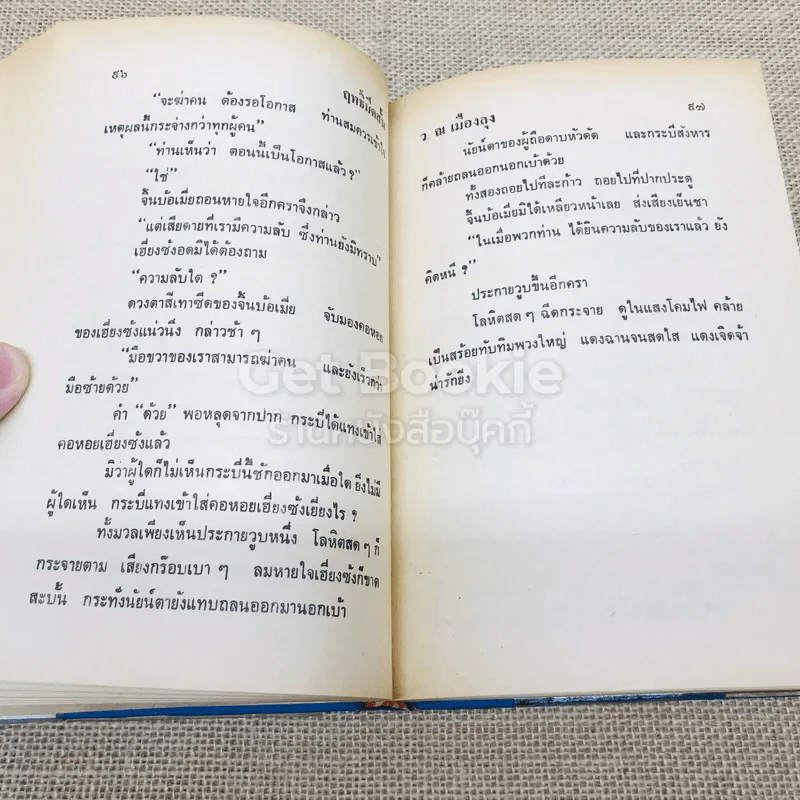 ๙๖
ฤทธิ์มีดสั้น
"จะฆ่าคน ต้องรอโอกาส ท่านสมควรเข้าใจ
เหตุผลนี้กระจ่างกว่าทุกผู้คน"
"ท่านเห็นว่า ตอนนี้เป็นโอกาสแล้ว ?"
"ใช่"
จิ้นบ้อเมี่ยถอนหายใจอีกคราจึงกล่าว
"แต่เสียดายที่เรามีความลับ ซึ่งท่านยังมิทราบ"
เฮี่ยงซ้งอดมิได้ต้องถาม
"ความลับใด ?"
ดวงตาสีเทาซีดของจิ้นบ้อเมี่ย จับมองคอหอย
ของเฮี่ยงซ้งแน่วนิ่ง กล่าวช้า ๆ
"มือขวาของเราสามารถฆ่าคน และยังเร็วกว่า
มือซ้ายด้วย"
คำ "ด้วย" พอหลุดจากปาก กระบี่ได้แทงเข้าใส่
คอหอยเฮี่ยงซ้งแล้ว
มิว่าผู้ใดก็ไม่เห็นกระบี่นี้ชักออกมาเมื่อใด ยิ่งไม่มี
ผู้ใดเห็น กระบี่แทงเข้าใส่คอหอยเฮี่ยงซ้งเยี่ยงไร ?
ทั้งมวลเพียงเห็นประกายวูบหนึ่ง โลหิตสด ๆ ก็
กระจายตาม เสียงกร๊อบเบา ๆ ลมหายใจเฮี่ยงซ้งก็ขาด
สะบั้น กระทั่งนัยน์ตายังแทบถลนออกมานอกเบ้า
ว. ณ เมืองลุง
๙๗
นัยน์ตาของผู้ถือดาบหัวตัด และกระบี่สังหาร
ก็คล้ายถลนออกนอกเบ้าด้วย
ทั้งสองถอยไปทีละก้าว ถอยไปที่ปากประตู
จิ้นบ้อเมี่ยมิได้เหลียวหน้าเลย ส่งเสียงเย็นชา
"ในเมื่อพวกท่าน ได้ยินความลับของเราแล้ว ยัง
คิดหนี ?"
ประกายวูบขึ้นอีกครา
โลหิตสด ๆ ฉีดกระจาย ดูในแสงโคมไฟ คล้าย
เป็นสร้อยทับทิมพวงใหญ่ แดงฉานจนสดใส แดงเจิดจ้า
น่ารักยิ่ง
Get Bookie
ร้านหนังสือบุ๊คกี้